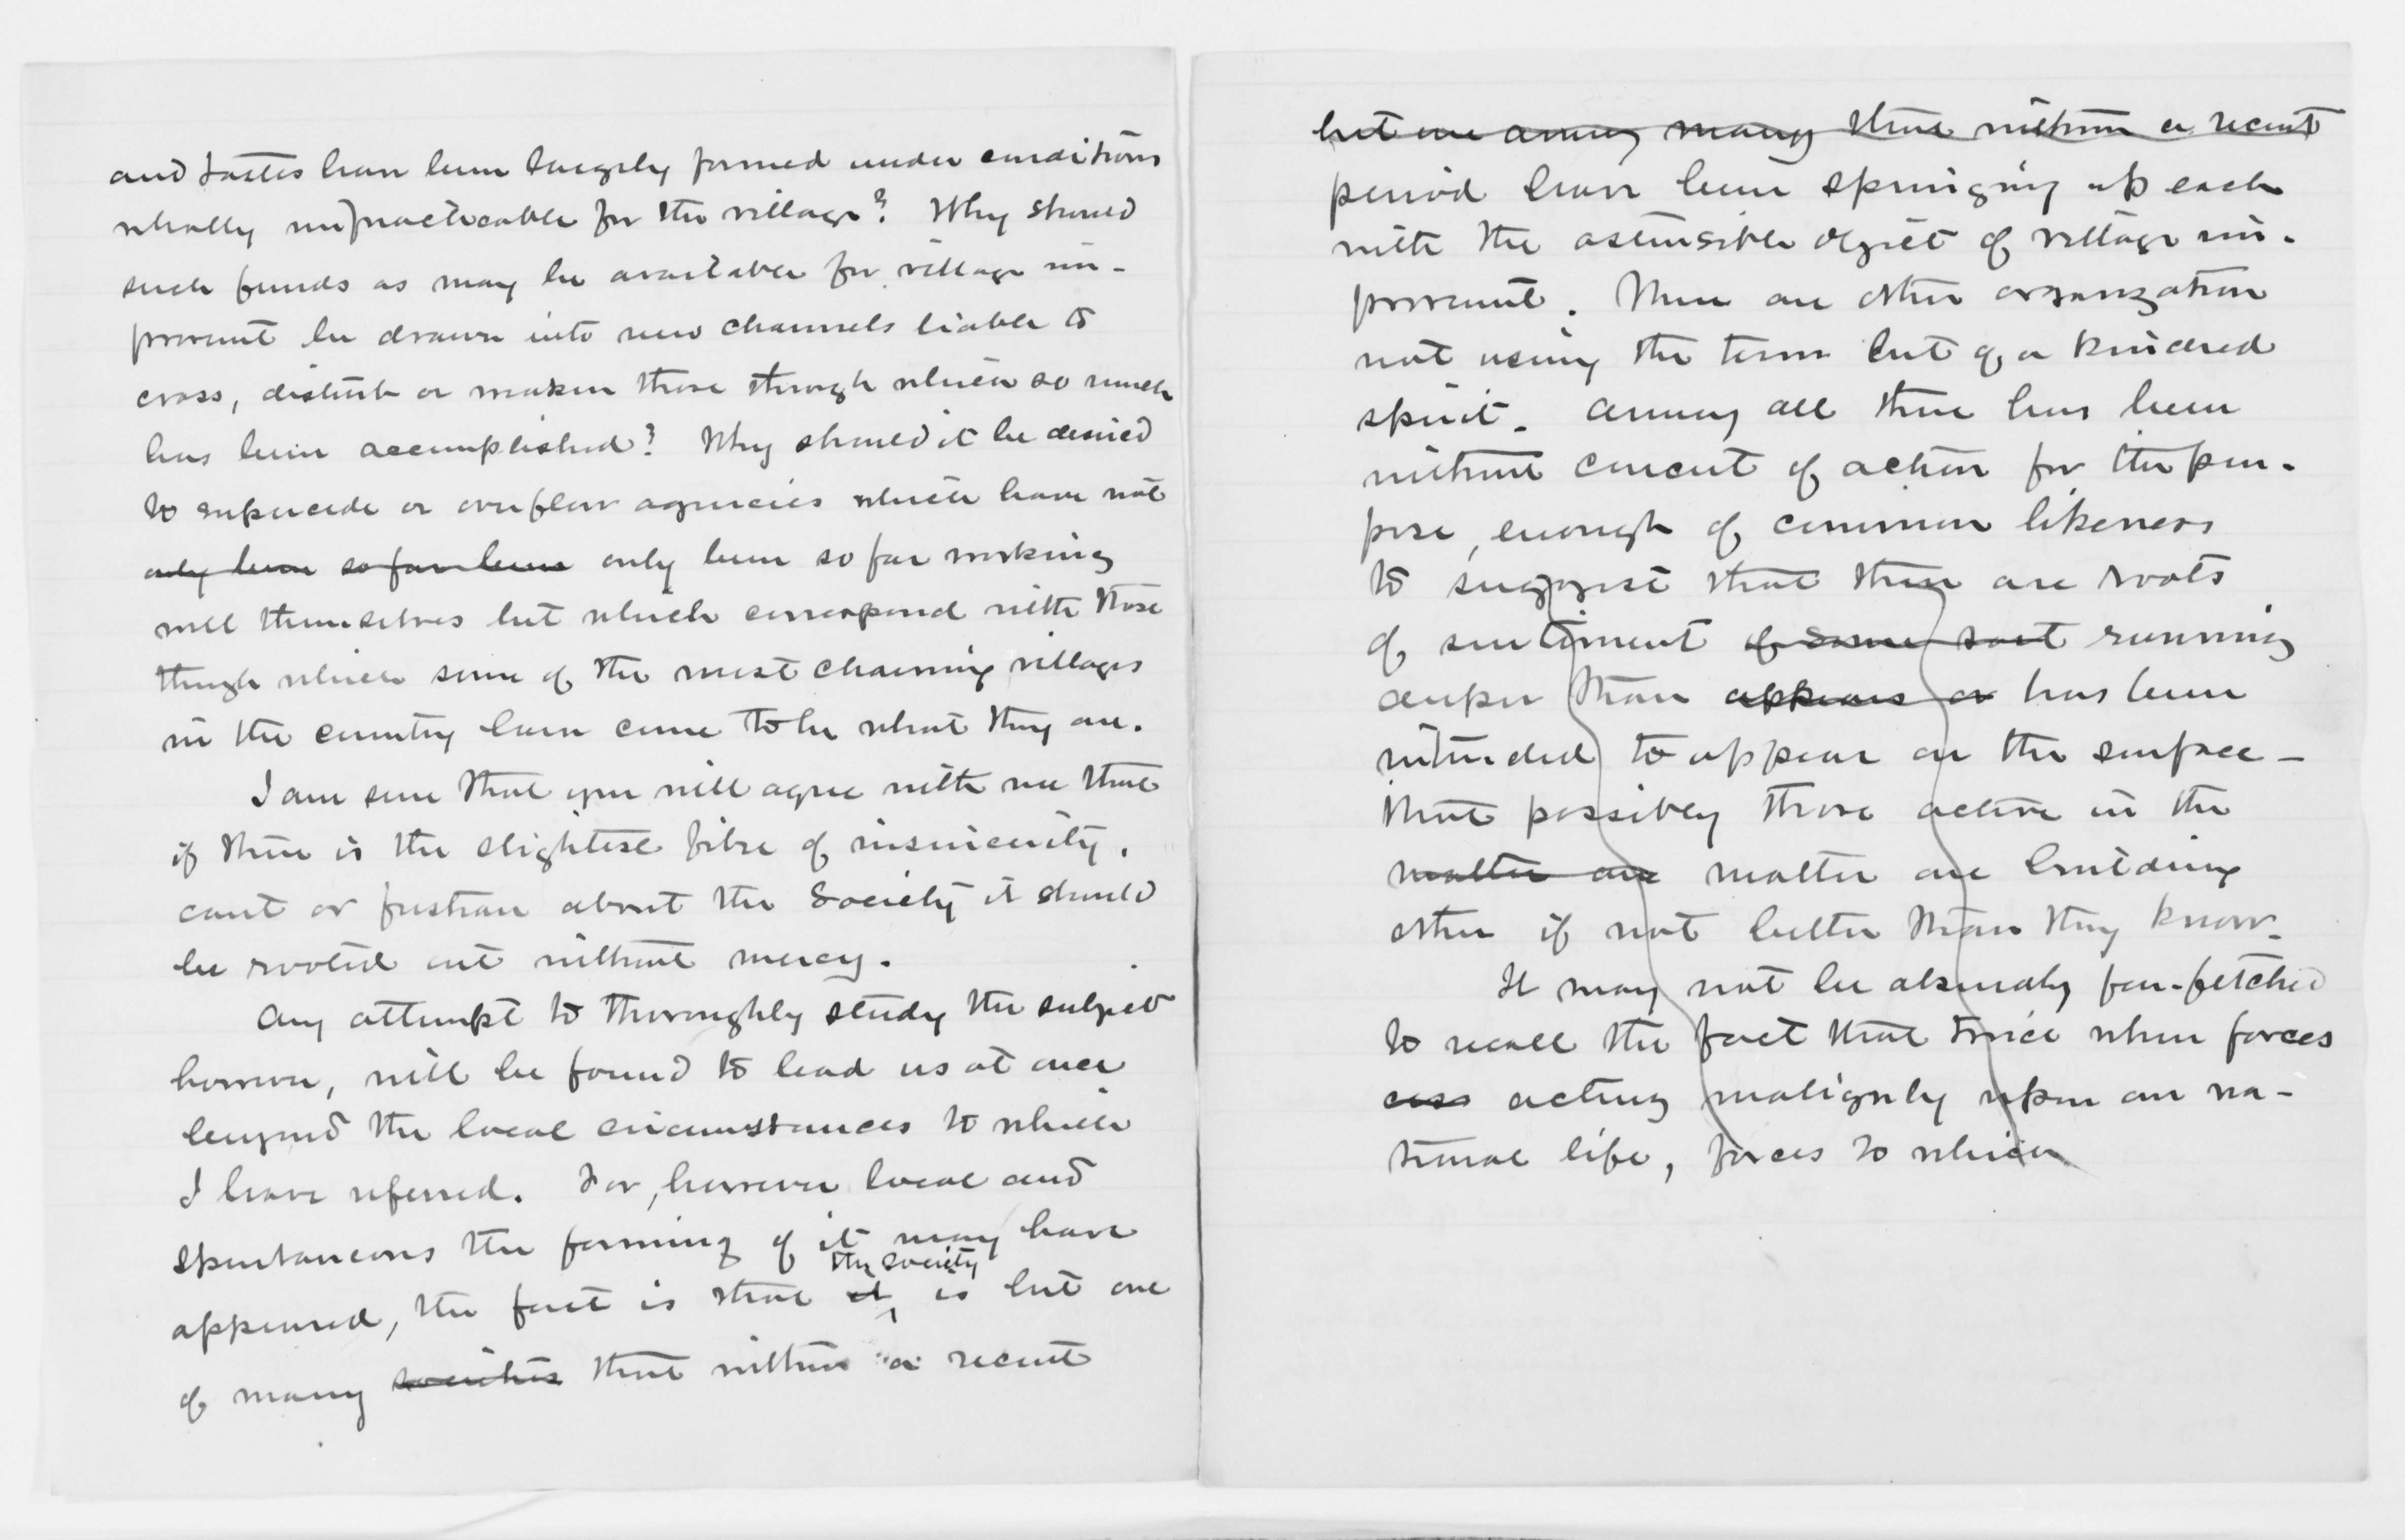 and tastes have been largely formed under conditions
wholly unpracticable for the village? Why should
such funds as may be available for village im-
provement be drawn into new channels liable to
cross, disturb or weaken those through which so much
has been accomplished? Why should it be desired
to supersede or overflow agencies which have not
only been so far been only been so far working
well themselves but which correspond with those
through which some of the most charming villages
in the country have come to be what they are.
I am sure that you will agree with me that
if there is the slightest fibre of insincerity,
cant or fustian about the Society it should
be rooted out without mercy.
Any attempt to thoroughly study the subject
however, will be found to lead us at once
beyond the local circumstances to which
I have referred. For, however local and
spontaneous the forming of it may have
the society
appeared, the fact is that it is but one
of many societies that within a recent
but one among many that within a recent
period have been springing up each
with the ostensible object of village im-
provement. There are other organization
not using the term but of a kindred
spirit. Among all there has been
without concert of action for the pur-
pose, enough of common likeness
to suggest that there are roots
of sentiment of some sort running
deeper than appears or has been
intended to appear on the surface -
that possibly those active in the
matter are matter are building
other if not better than they know.
It may not be absurdly far-fetched
to recall the fact that twice when forces
acting malignly upon our na-
tional life, forces to which